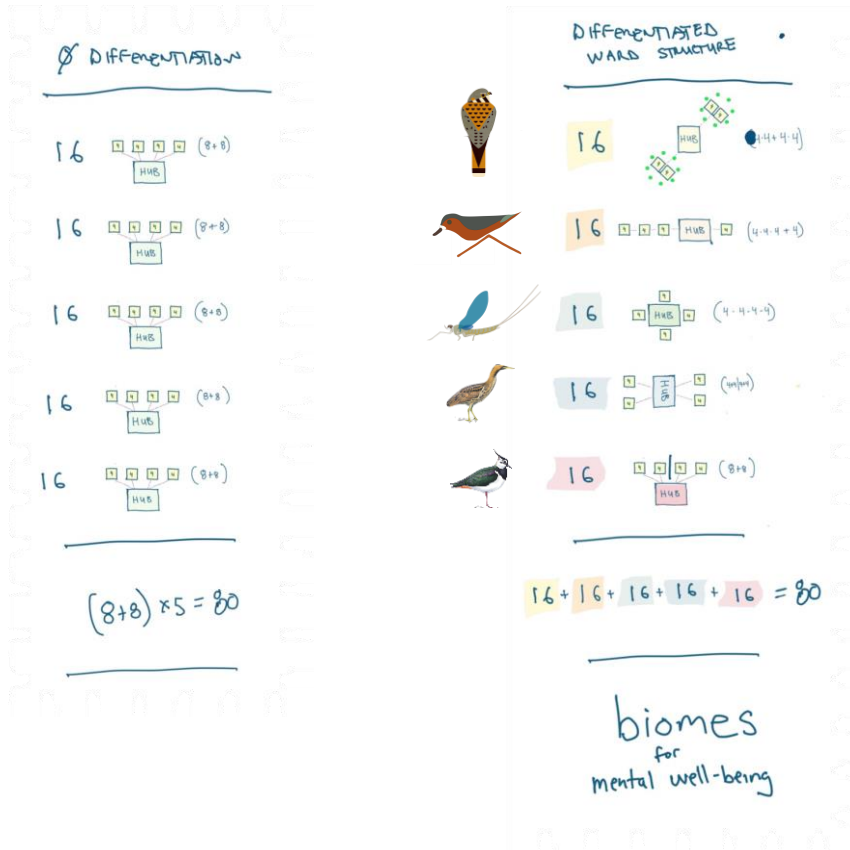 Ø DIFFERENTIATION
16 4 4 4 4 (8+8)
HUB
16 4 4 4 4 (8+8)
HUB
16 4 4 4 4 (8+8)
HUB
16 4 4 4 4 (8+8)
HUB
16 4 4 4 4 (8+8)
HUB
(8+8) x5 = 80
DIFFERENTIATED
WARD STRUCTURE
16 HUB 4·4+4·4)
16 4 4 4 HUB 4 (4·4·4+4)
4
16 4 HUB 4 (4-4-4-4)
4
4 4
16 HUB
4 4
16 4 4 4 4 (8+8)
HUB
16 + 16 + 16 + 16 + 16 = 80
biomes
for
mental well-being